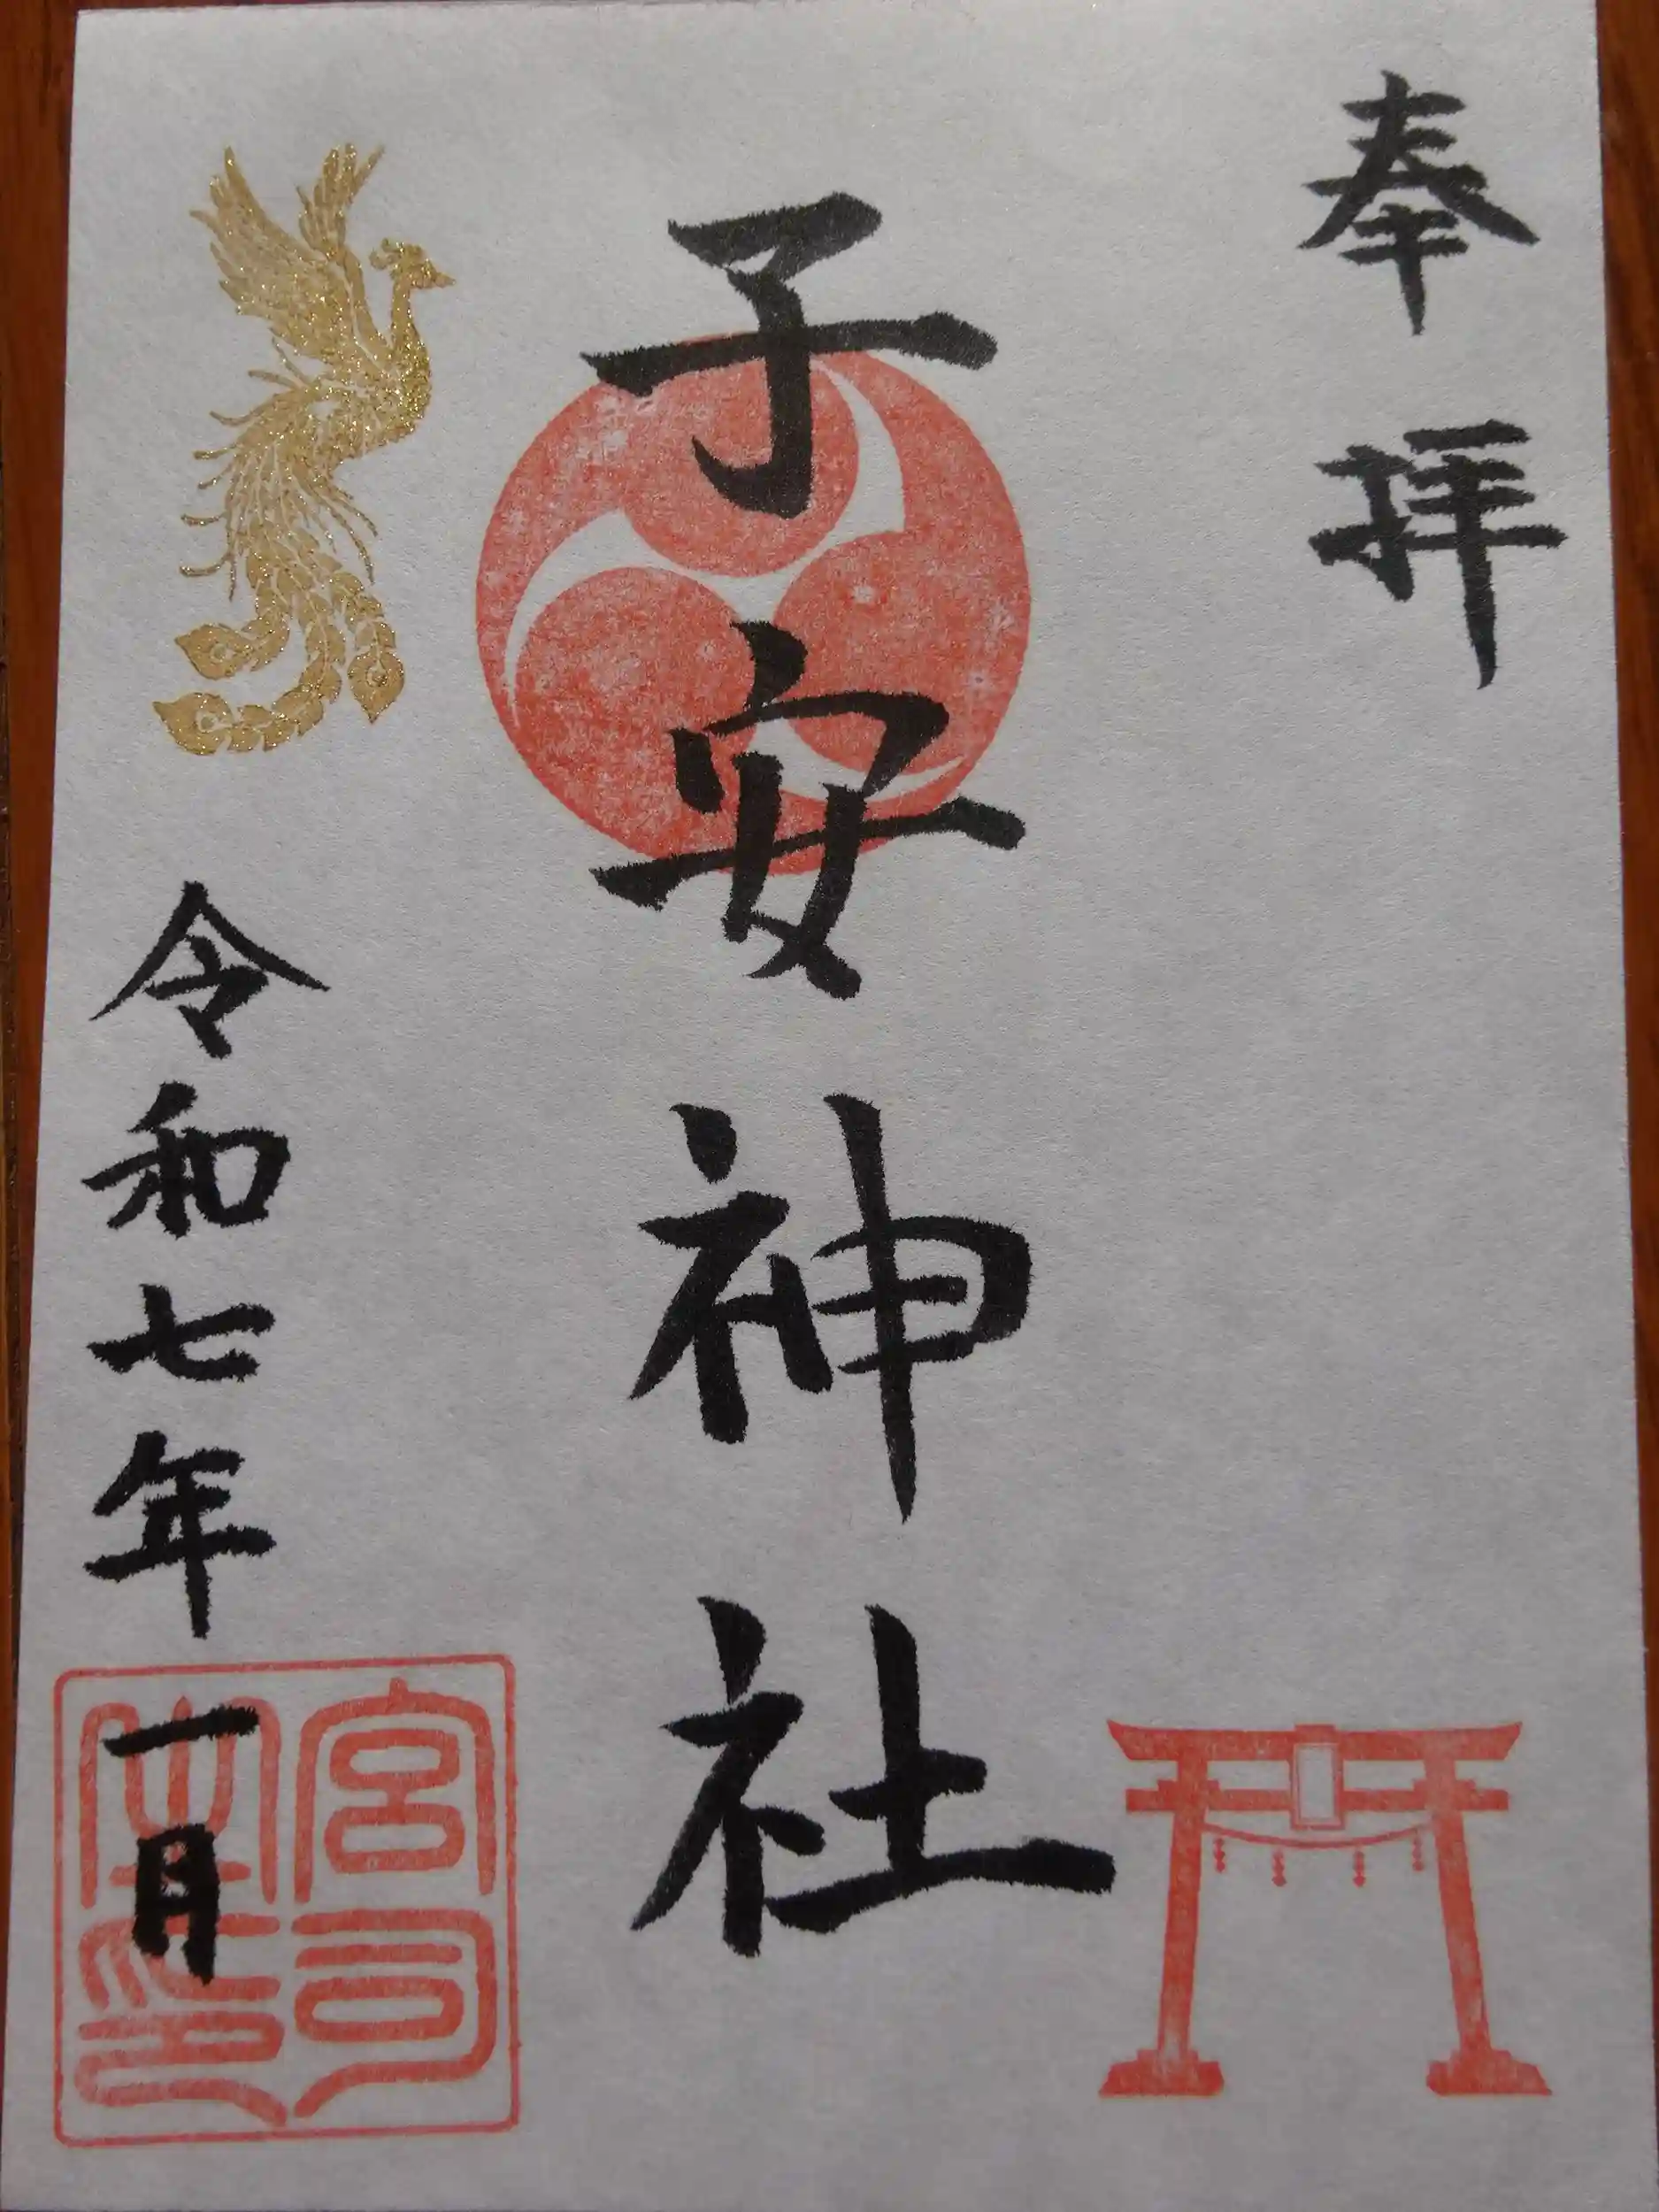 奉拝
子安神社
令和七年一月
宮司之印